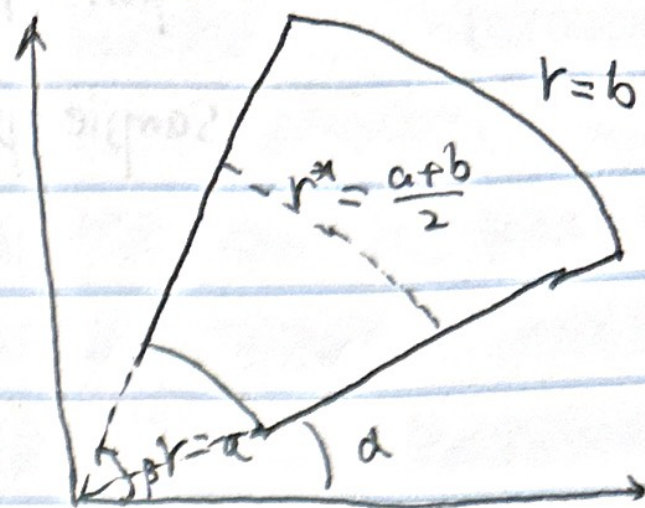 r = b
r* = (a+b)/2
β
r = a
α